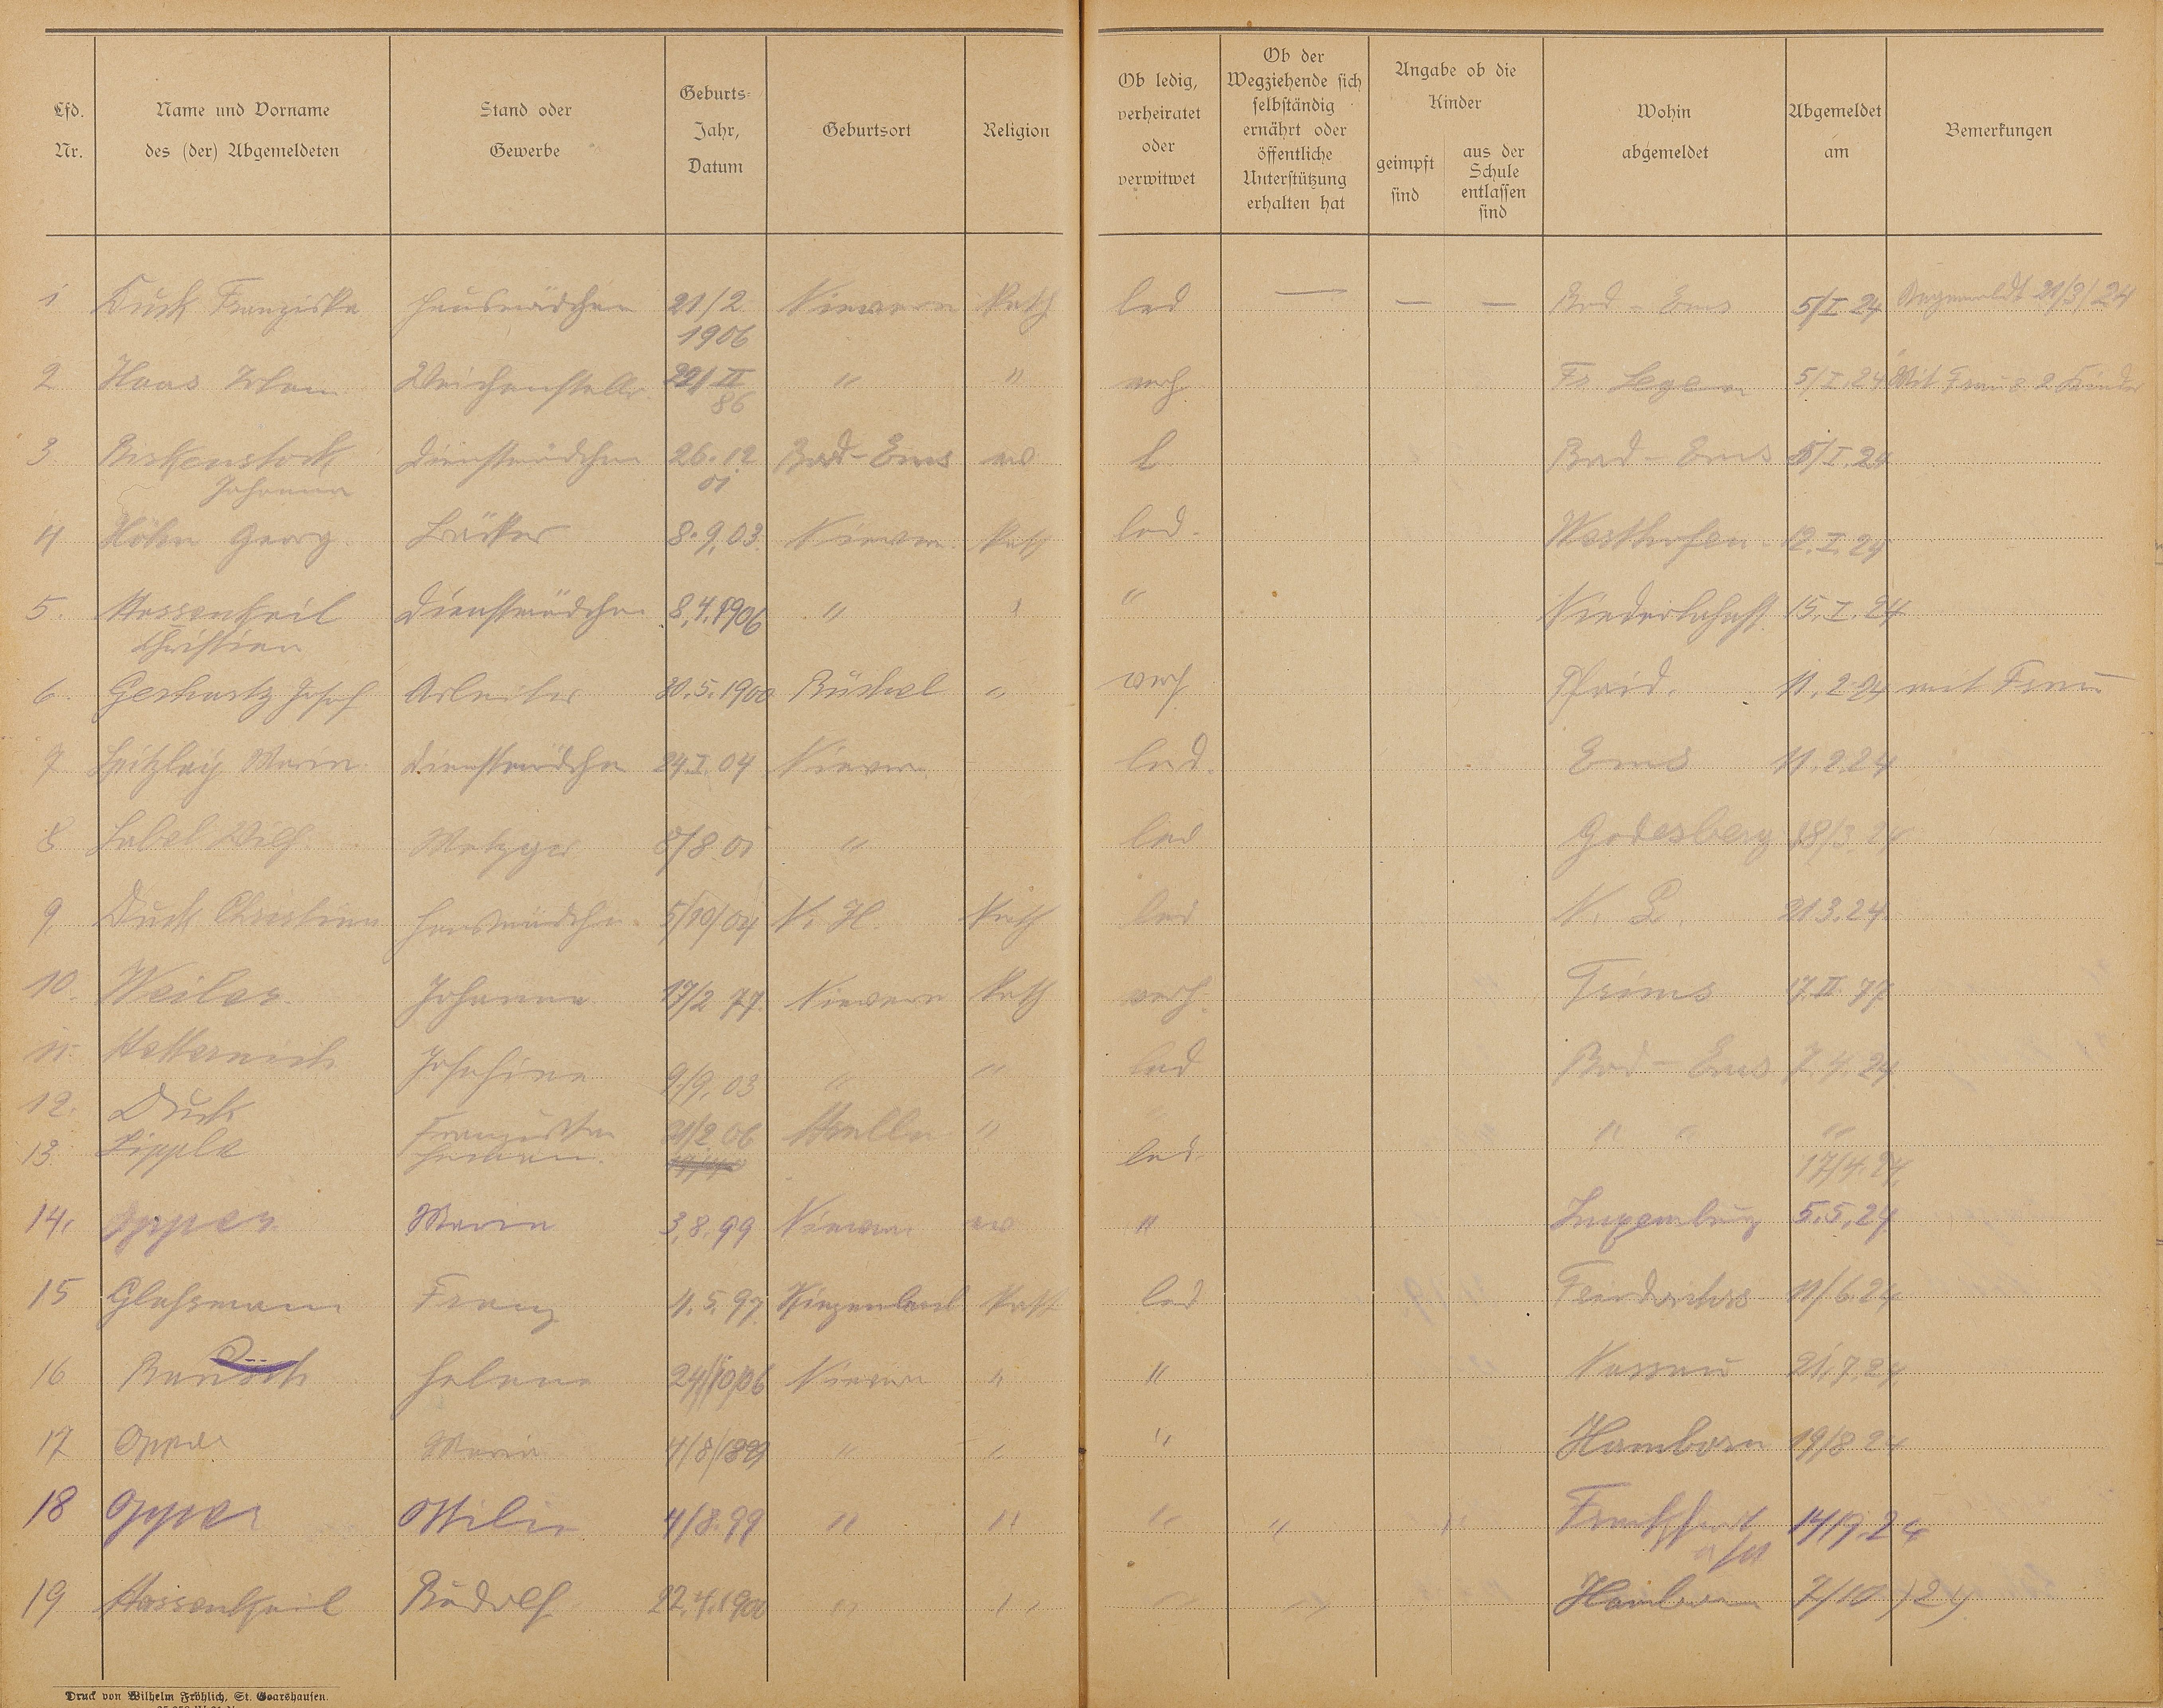 Lfd. Nr. Name und Vorname des (der) Abgemeldeten Stand oder Gewerbe Geburts- Jahr, Datum Geburtsort Religion Ob ledig, verheiratet oder verwitwet Ob der Wegziehende sich selbständig ernährt oder öffentliche Unterstützung erhalten hat Angabe ob die Kinder geimpft sind aus der Schule entlassen sind Wohin abgemeldet Abgemeldet am Bemerkungen
1 Duck Franziska Hausmädchen 21/2 1906 Nievern Kath led — — — Bad-Ems 5/I 24 Angemeldt 21/3/24
2 Haas Weichensteller 22/II 86 " " verh 5/I.24 Mit Frau & 2 Kinder
3 Birkenstock Johanna Dienstmädchen 26.12 01 Bad-Ems ev l Bad-Ems 5/I.24
4 Höhn Georg Bäcker 8.9.03. Nievern. Kath led. Westhofen 12.I.24
5. Massenkeil Christian Dienstmädchen 8.4.1906 " " " 15.I.24
6. Gerhartz Josef Arbeiter 30.5.1900 Büchel " verh Pfaid. 11.2.24 mit Frau
7 Maria Dienstmädchen 24.I.04 Nievern led. Ems 11.2.24
8 Label Wilh. Metzger 8/8 01 " led Godesberg 18/3.24
9. Duck Christina Hausmädchen 5/10/04 N. H. Kath led N. L. 21 3.24
10. Weiler Johanna 17/2 77. Nievern Kath verh. Trims 17.II 77
11. Metternich Josefina 9/9.03 " " led Bad-Ems 7.4.24
12. Duck Franziska 21/2 06 " " " "
13. Lippla led. 17/4.24
14. Opper Maria 3.8.99 Nievern ev " Luxemburg 5.5.24
15 Glassmann Franz 4.5.97. Kath led 11/6.24
16 Bausch Helena 24/10/06 Nievern " " Nassau 21.7.24
17 Opper Maria 4/8/1899 " " " Hamborn 19/8 24
18 Opper Ottilie 4/8.99 " " " " " Frankfurt 14/9.24
19 Massenkeil Rudolf 22.4.1900 " " " " Hamborn 7/10/24
Druck von Wilhelm Fröhlich, St. Goarshausen.